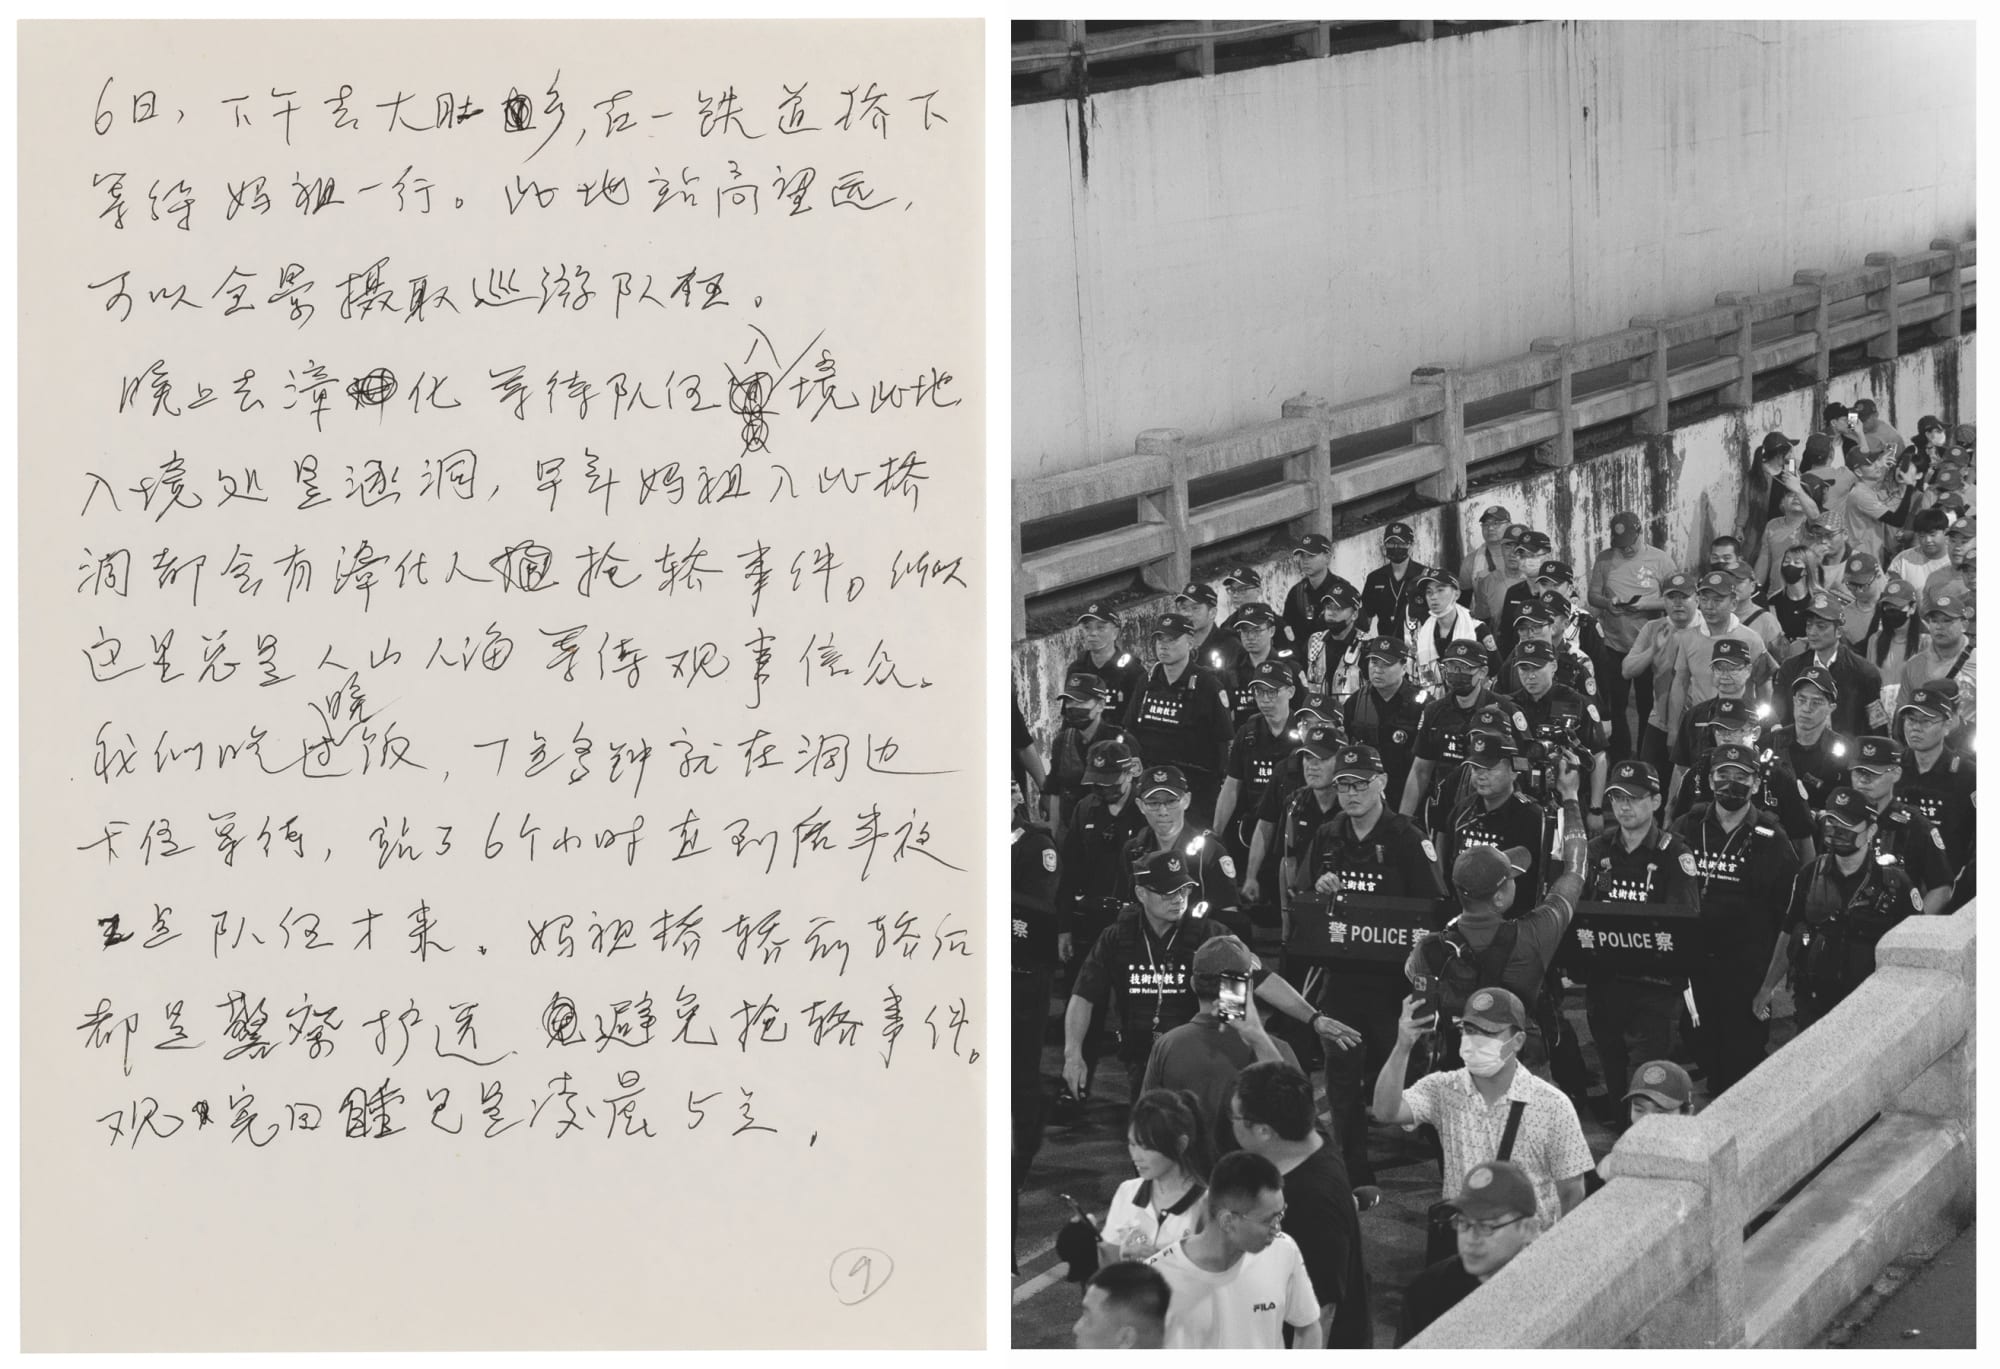 6日，下午去大肚乡，在一铁道桥下
等待妈祖一行。此地站高望远，
可以全景摄取巡游队伍。
晚上去漳化 等待队伍入境此地
入境处是涵洞，早年妈祖入此桥
洞都会有漳化人抢轿事件。所以
这里总是人山人海等待观事信众。
我们吃过晚饭，7点多钟就在洞边
卡位等待，站了6个小时直到后半夜
2点队伍才来。妈祖桥轿前轿后
都是警察护送、避免抢轿事件。
观完回睡已是凌晨5点．
9
技術教官
技術教官
CHPD Police Instructor
技術教官
技術教官
警 POLICE 察
警 POLICE 察
察
技術總教官
FILA